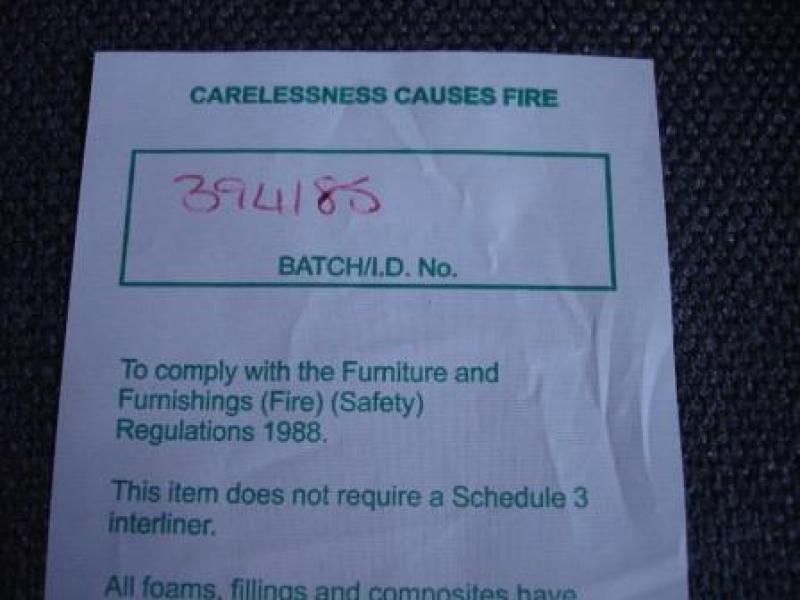 CARELESSNESS CAUSES FIRE
394185
BATCH/I.D. No.
To comply with the Furniture and
Furnishings (Fire) (Safety)
Regulations 1988.
This item does not require a Schedule 3
interliner.
All foams, fillings and composites have